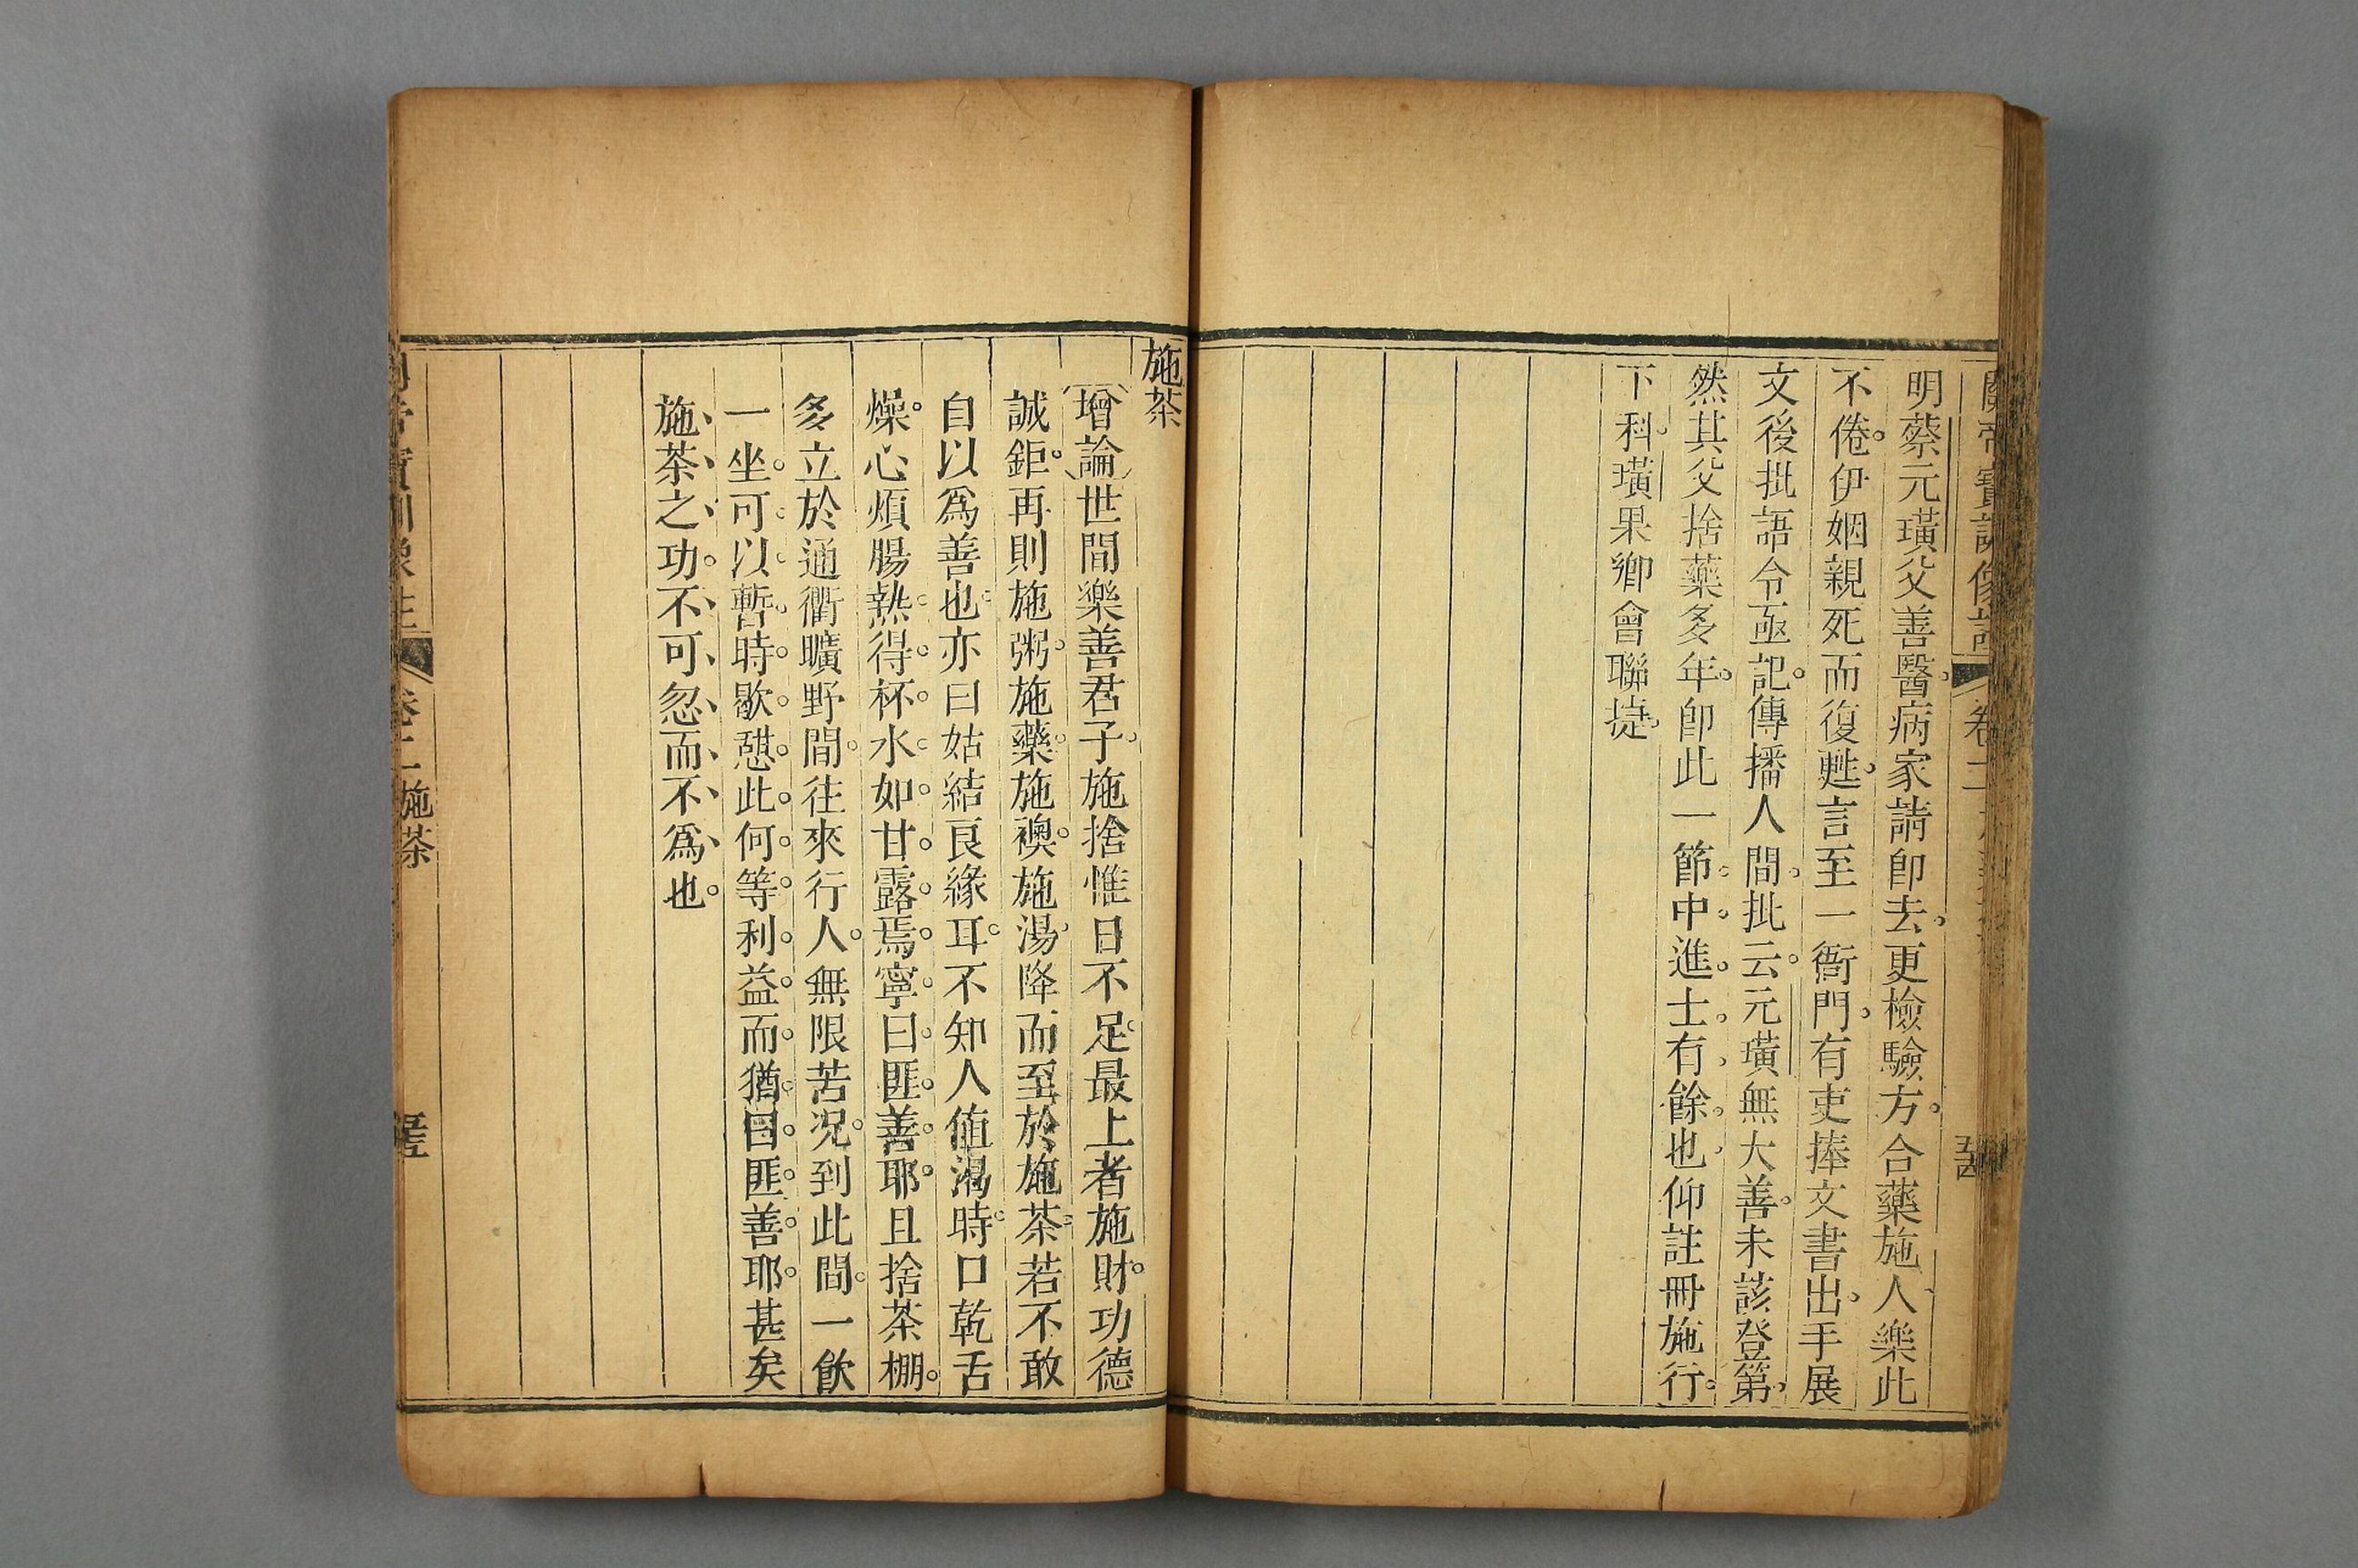 明蔡元璜父善醫病家請卽去更檢驗方合藥施人樂此
不倦伊姻親死而復甦言至一衙門有吏捧文書出手展
文後批語令亟記傳播人間批云元璜無大善未該登第
然其父捨藥多年卽此一節中進士有餘也仰註冊施行
下科璜果鄉會聯捷
施茶
增論世間樂善君子施捨惟日不足最上者施財功德
誠鉅再則施粥施藥施襖施湯降而至於施茶若不敢
自以爲善也亦曰姑結良緣耳不知人值渴時口乾舌
燥心煩腸熱得杯水如甘露焉寧曰匪善耶且捨茶棚
多立於通衢曠野間往來行人無限苦况到此間一飮
一坐可以暫時歇憇此何等利益而猶曰匪善耶甚矣
施茶之功不可忽而不爲也
卷二施茶